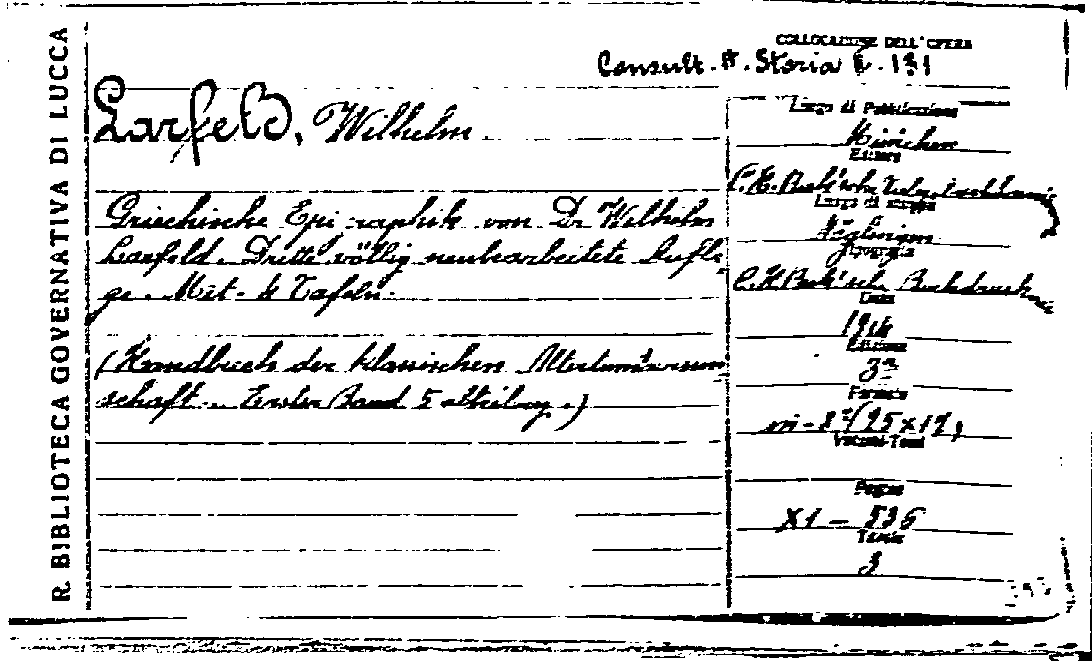 R. BIBLIOTECA GOVERNATIVA DI LUCCA
COLLOCAZIONE DELL'OPERA
Consult. St. Storia E. 131
Larfeld, Wilhelm.
Griechische Epigraphik von Dr Wilhelm
Larfeld. Dritte völlig neubearbeitete Aufla-
ge. Mit. 4 Tafeln.
(Handbuch der klassischen Altertumswissen
schaft. Erster Band 5 abteilung.)
Luogo di Pubblicazione
München
Editore
C. H. Beck'sche
Luogo di stampa
Tipografia
C. H. Beck'sche Buchdruck
Data
1914
Edizione
3ª
Formato
in-8° (25 x 17)
Volumi-Tomi
Pagine
XI — 536
Tavole
3